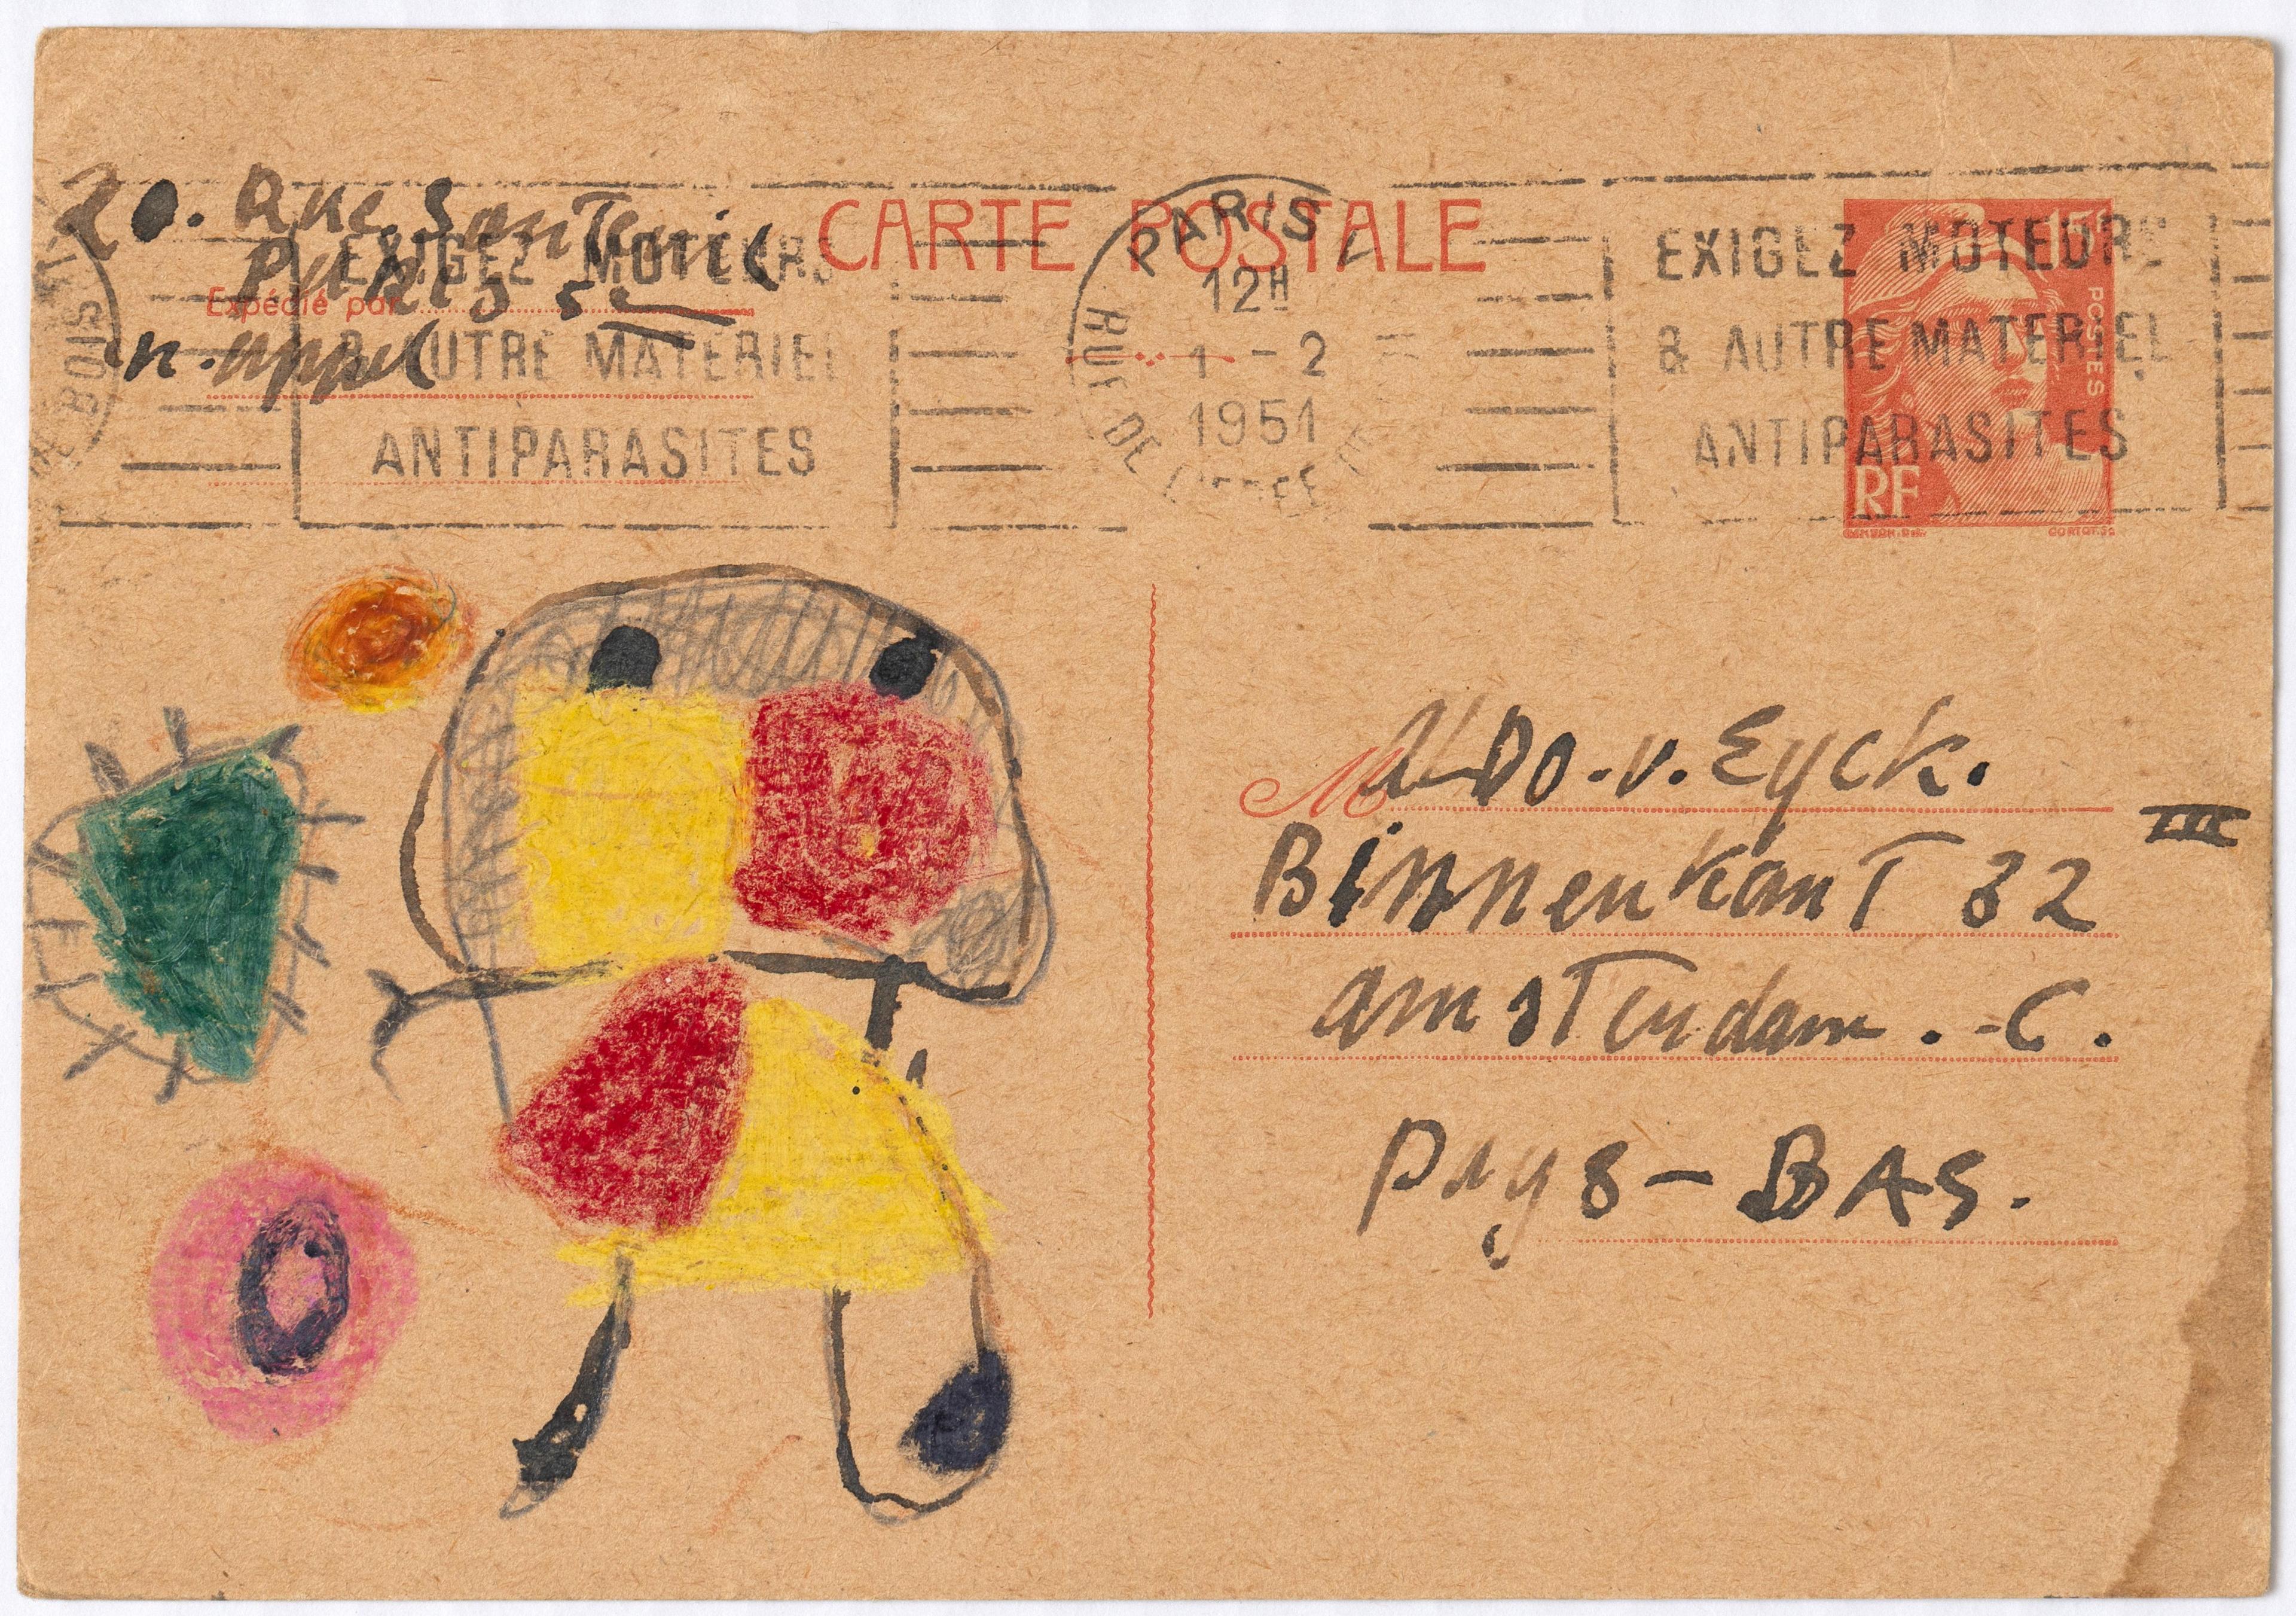 20. Rue Santeuil
Paris 5e
Expédié par
K. appel
CARTE POSTALE
EXIGEZ MOTEURS
& AUTRE MATERIEL
ANTIPARASITES
PARIS
12H
1 - 2
1951
RUE DE
EXIGEZ MOTEURS
& AUTRE MATERIEL
ANTIPARASITES
BOIS
15F
POSTES
RF
M ALDO. v. Eyck.
Binnenkant 32 III
amsterdam. - C.
Pays - BAS.